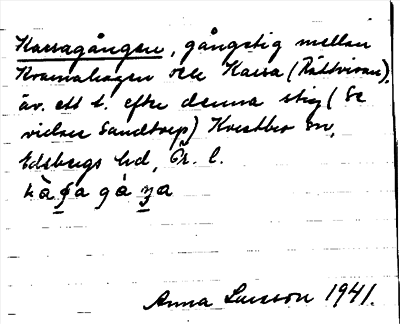 Kassagången, gångstig mellan
Kramahagen och Kassa (Rättviran),
äv. ett t. efter denna stig (Se
vidare Sandtorp) Kvistbro sn,
Edsbergs hd, Ör. l.
Anna Larsson 1941.